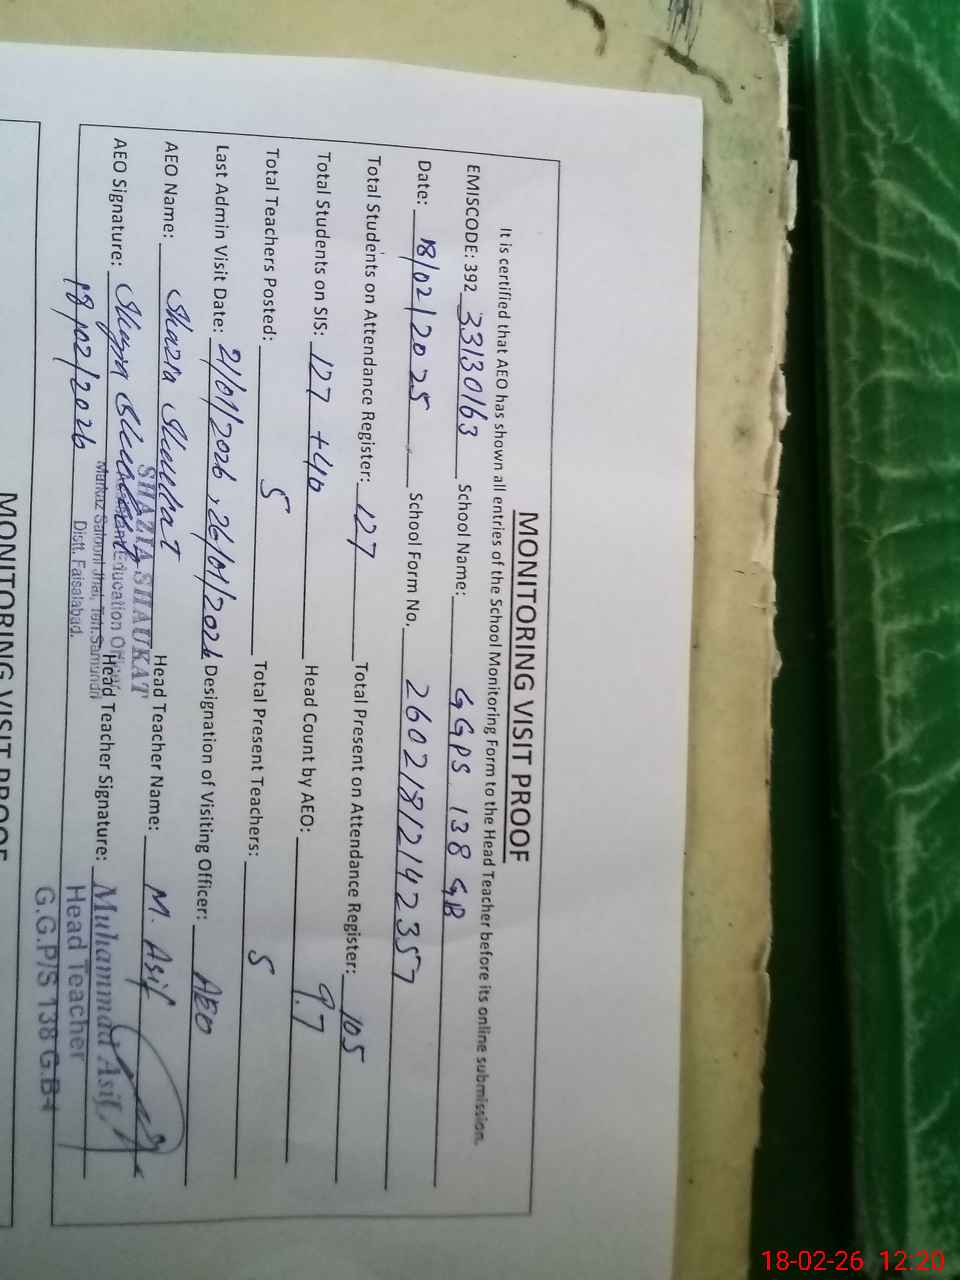 MONITORING VISIT PROOF
It is certified that AEO has shown all entries of the School Monitoring Form to the Head Teacher before its online submission.
EMISCODE: 392 33130163 School Name: GGPS 138 GB
Date: 18/02/2025 School Form No. 26021812142357
Total Students on Attendance Register: 127 Total Present on Attendance Register: 105
Total Students on SIS: 127 + 40 Head Count by AEO: 97
Total Teachers Posted: 5 Total Present Teachers: 5
Last Admin Visit Date: 21/01/2026, 26/01/2026 Designation of Visiting Officer: AEO
AEO Name: Shazia Shaukat Head Teacher Name: M. Asif
SHAZIA SHAUKAT
AEO Signature: Head Teacher Signature: Muhammad Asif
Education Officer
Markaz Saloni Jhal, Teh. Samundri
Distt. Faisalabad.
18/02/2026
Head Teacher
G.G.P/S 138 G.B
MONITORING VISIT PROOF
18-02-26 12:20